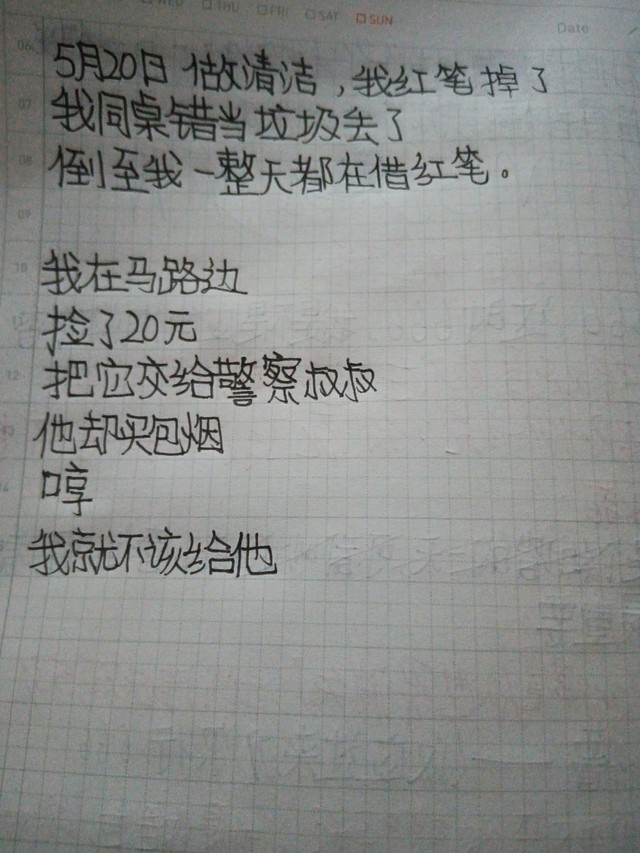 WED THU FRI SAT SUN
Date
06
5月20日 做清洁,我红笔掉了
07
我同桌错当垃圾丢了
08
倒至我一整天都在借红笔。
09
10
我在马路边
捡了20元
12
把它交给警察叔叔
13
他却买包烟
14
哼
我就不该给他